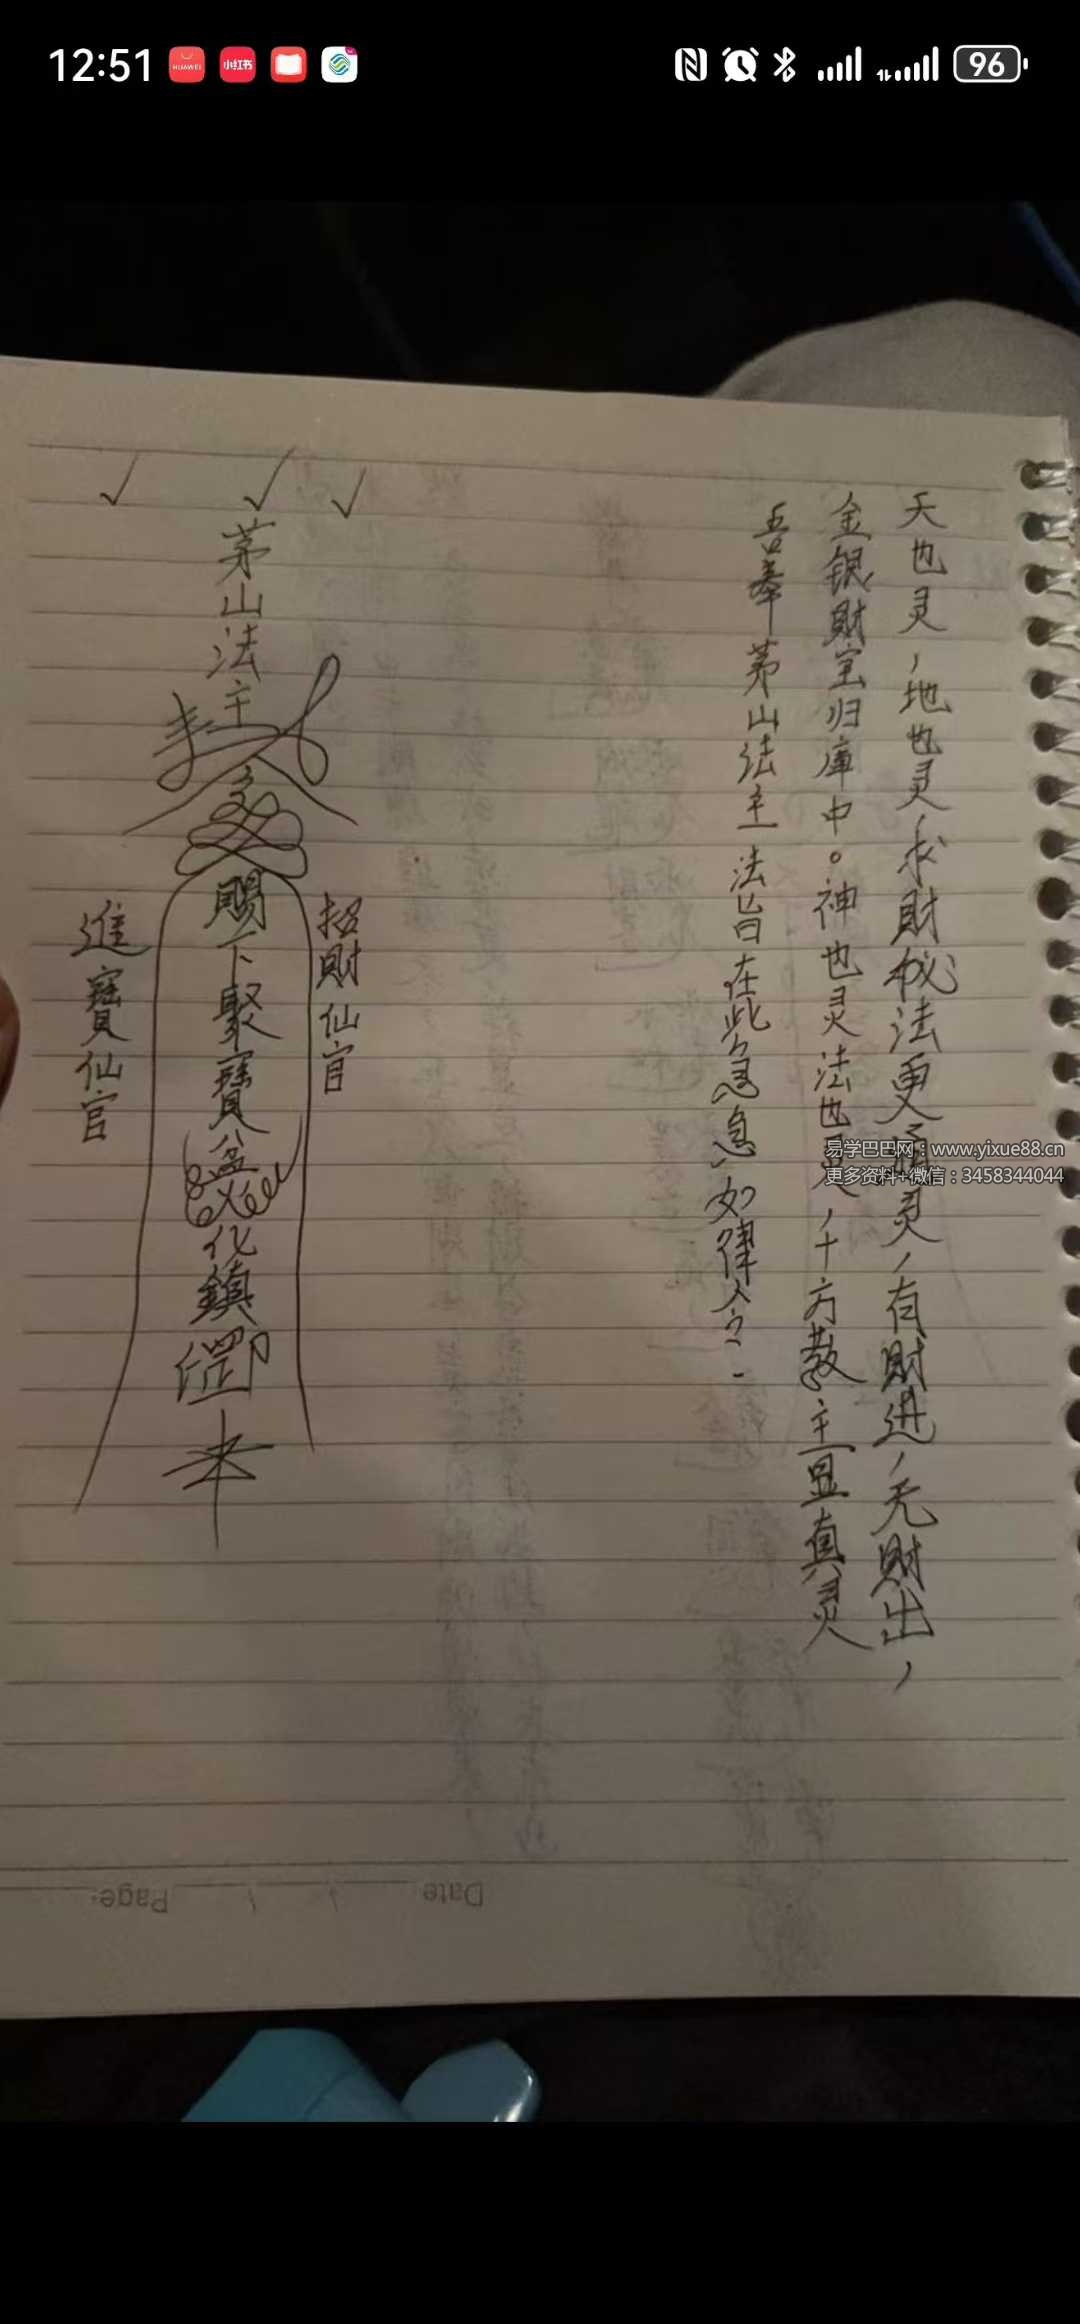 12:51
HUAWEI
小红书
96
天也灵，地也灵，求財秘法更通灵，有財进，无財出，
金银財宝归库中。神也灵法也灵，十方教主显真灵
吾奉茅山法主法旨在此急急如律令.
易学巴巴网：www.yixue88.cn
更多资料+微信：3458344044
茅山法主
招財仙官
賜下聚寶盆
化鎮
進寶仙官
Date
Page: